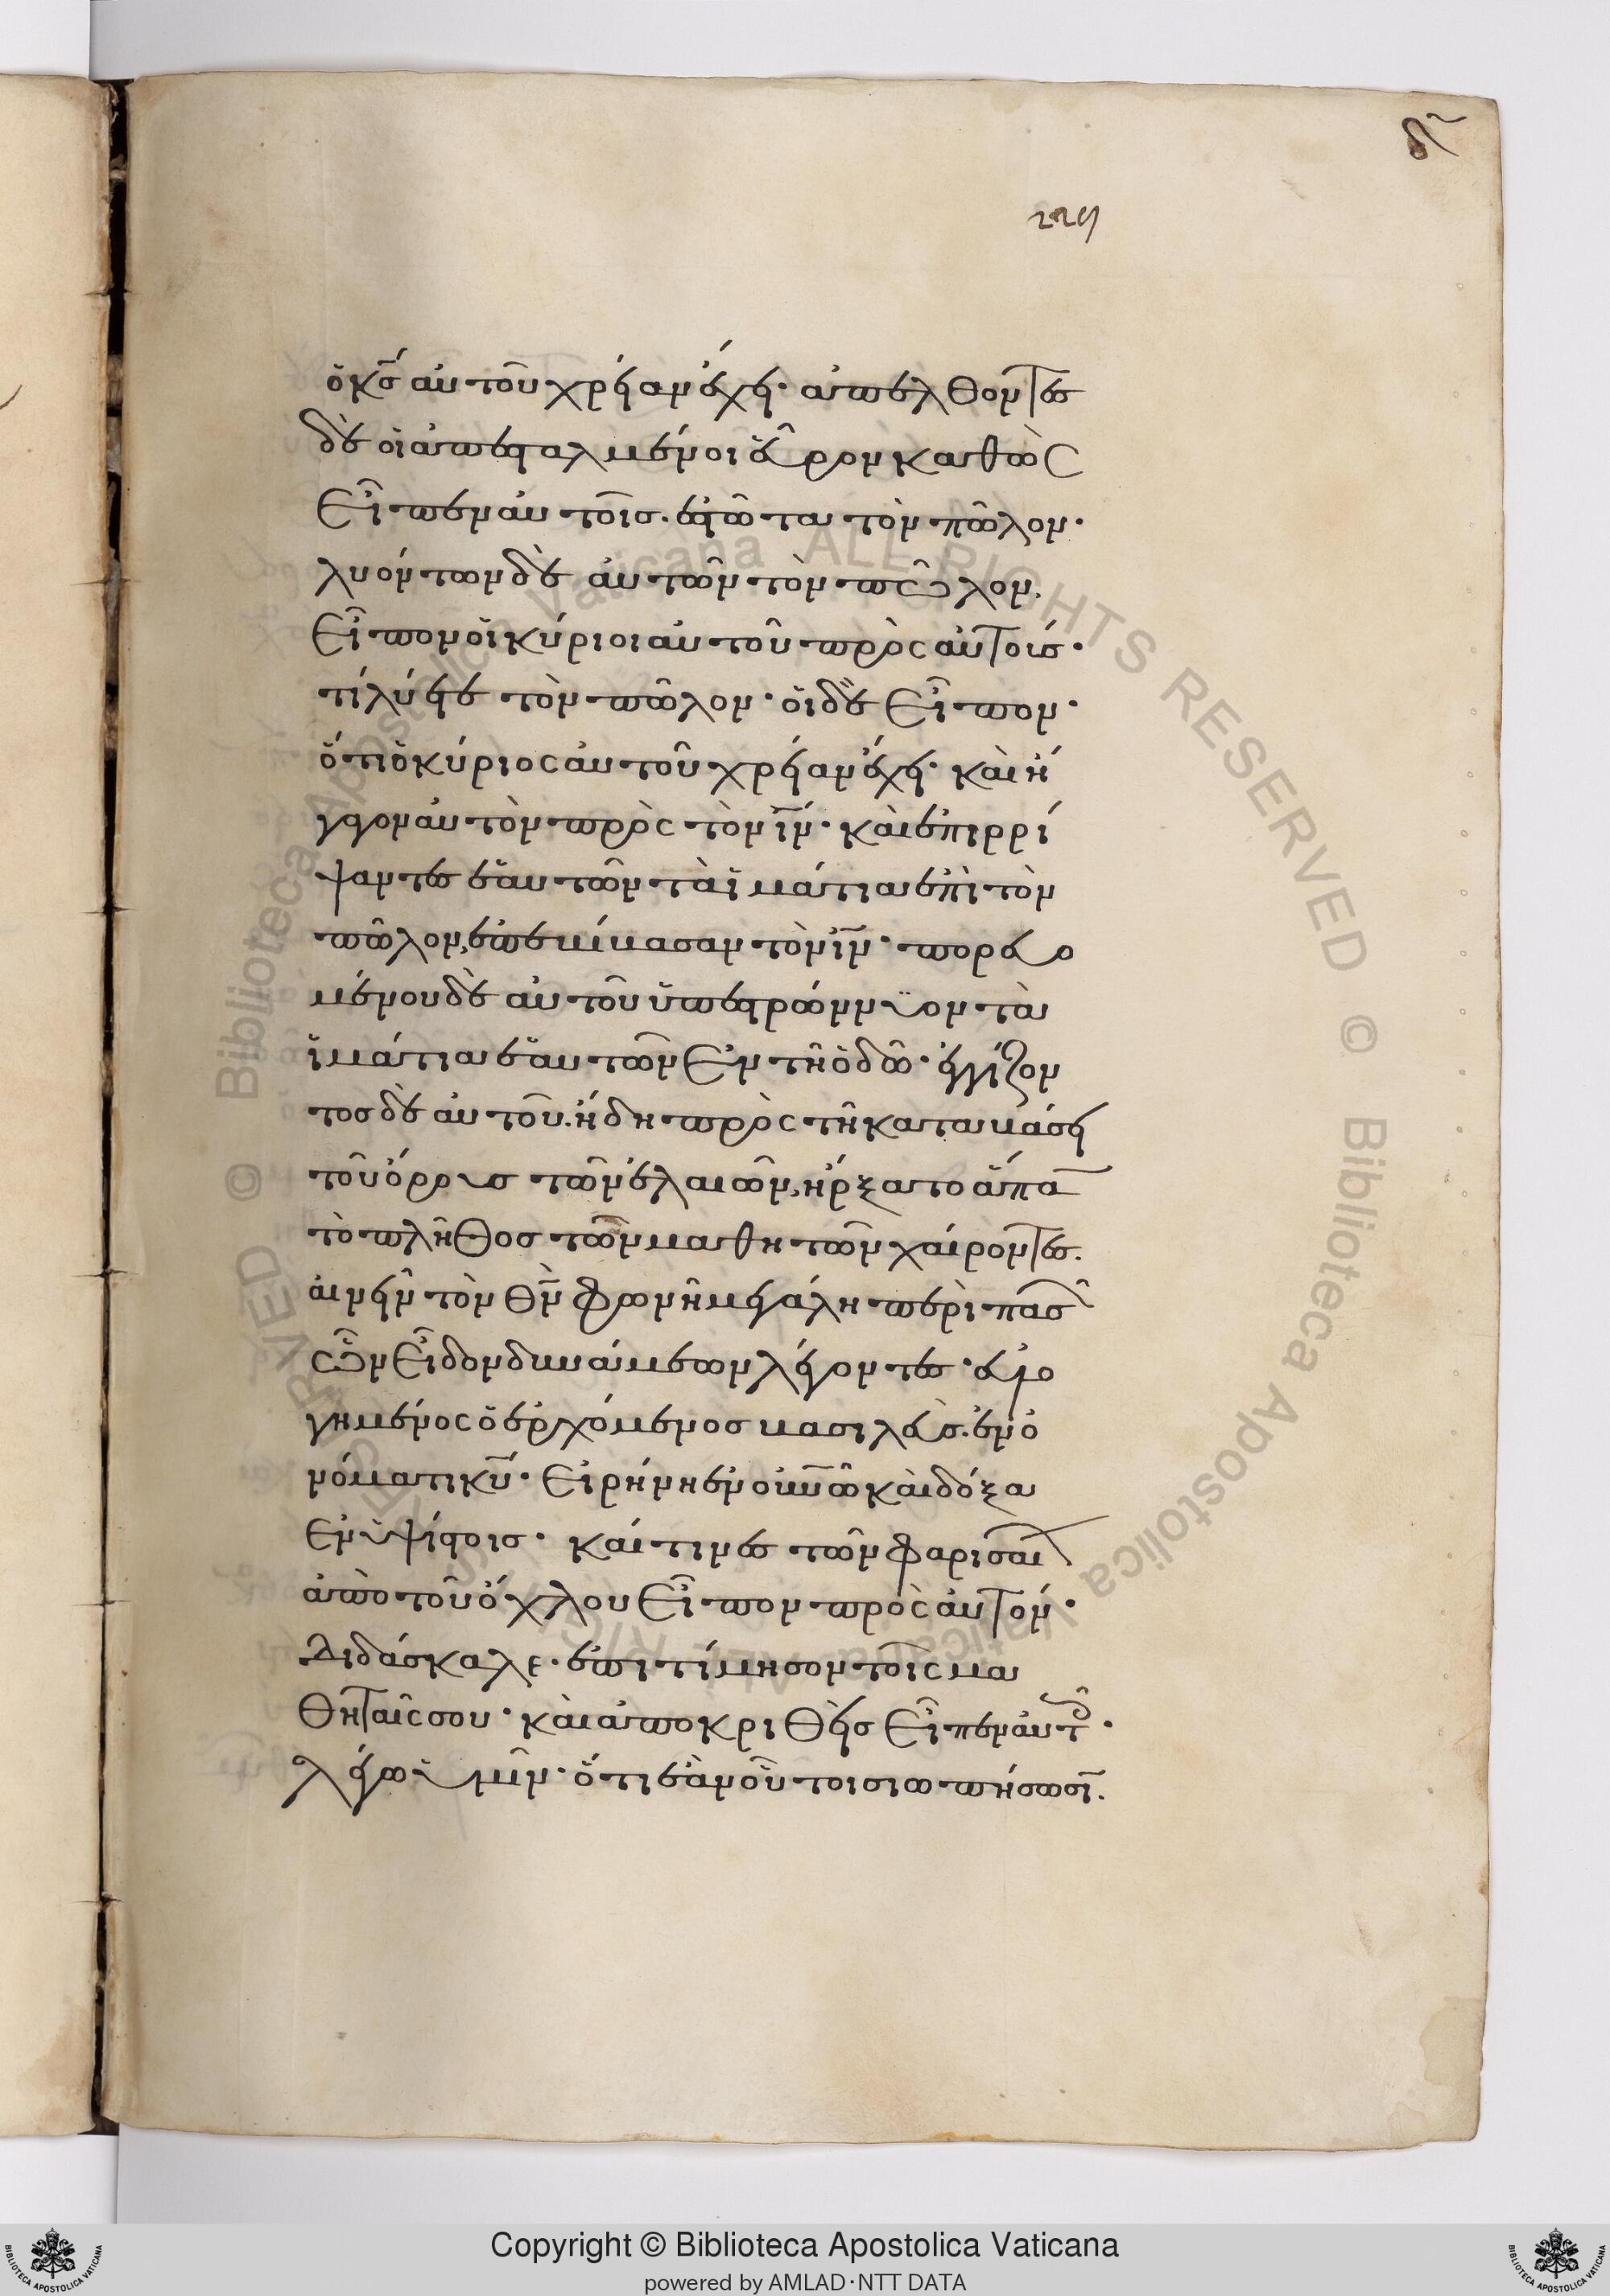 229
ὁ κ̅ς̅ αὐτοῦ χρείαν ἔχει· ἀπελθόντες
δὲ οἱ ἀπεσταλμένοι εὗρον καθὼς
εἶπεν αὐτοῖς. ἑστῶτα τὸν πῶλον·
λυόντων δὲ αὐτῶν τὸν πῶλον,
εἶπον οἱ κύριοι αὐτοῦ πρὸς αὐτούς·
τί λύετε τὸν πῶλον· οἱ δὲ εἶπον·
ὅτι ὁ κύριος αὐτοῦ χρείαν ἔχει· καὶ ἤ
γαγον αὐτὸν πρὸς τὸν ι̅ν̅· καὶ ἐπιρρί
ψαντες ἑαυτῶν τὰ ἱμάτια ἐπὶ τὸν
πῶλον, ἐπεβίβασαν τὸν ι̅ν̅· πορευο
μένου δὲ αὐτοῦ ὑπεστρώννυον τὰ
ἱμάτια ἑαυτῶν ἐν τῆ ὁδῶ· ἐγγίζον
τος δὲ αὐτοῦ. ἤδη πρὸς τῆ καταβάσει
τοῦ ὄρους τῶν ἐλαιῶν, ἤρξατο ἅπαν
τὸ πλῆθος τῶν μαθητῶν χαίροντες.
αἰνεῖν τὸν θ̅ν̅ φωνῆ μεγάλη περὶ πασῶν
ὧν εἶδον δυνάμεων λέγοντες· εὐλο
γημένος ὁ ἐρχόμενος βασιλεὺς. ἐν ὀ
νόματι κ̅υ̅· εἰρήνη ἐν οὐ̅ν̅ῶ καὶ δόξα
ἐν ὑψίστοις· καί τινες τῶν φαρισαίων
ἀπὸ τοῦ ὄχλου εἶπον πρὸς αὐτόν·
Διδάσκαλε· ἐπιτίμησον τοῖς μα
θηταῖς σου· καὶ ἀποκριθεὶς εἶπεν αὐτοῖς·
λέγω ὑμῖν· ὅτι ἐὰν οὗτοι σιωπήσωσιν.
Copyright © Biblioteca Apostolica Vaticana
powered by AMLAD·NTT DATA
© Biblioteca Apostolica Vaticana ALL RIGHTS RESERVED
BIBLIOTECA APOSTOLICA VATICANA
BIBLIOTECA APOSTOLICA VATICANA